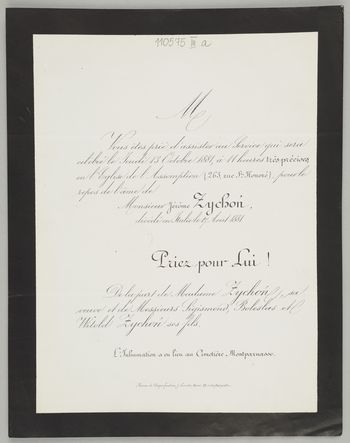 110575 III a
M
Vous êtes prié d'assister au Service qui sera
célébré le Jeudi 13 Octobre 1881, à 11 heures très précises,
en l'Eglise de l'Assomption (263, rue St Honoré), pour le
repos de l'âme de
Monsieur Jérôme Zychoń,
décédé en Italie le 17 Août 1881.
Priez pour Lui !
De la part de Madame Zychoń, sa
veuve et de Messieurs Sigismond, Boleslas et
Witold Zychoń ses fils.
L'Inhumation a eu lieu au Cimetière Montparnasse.